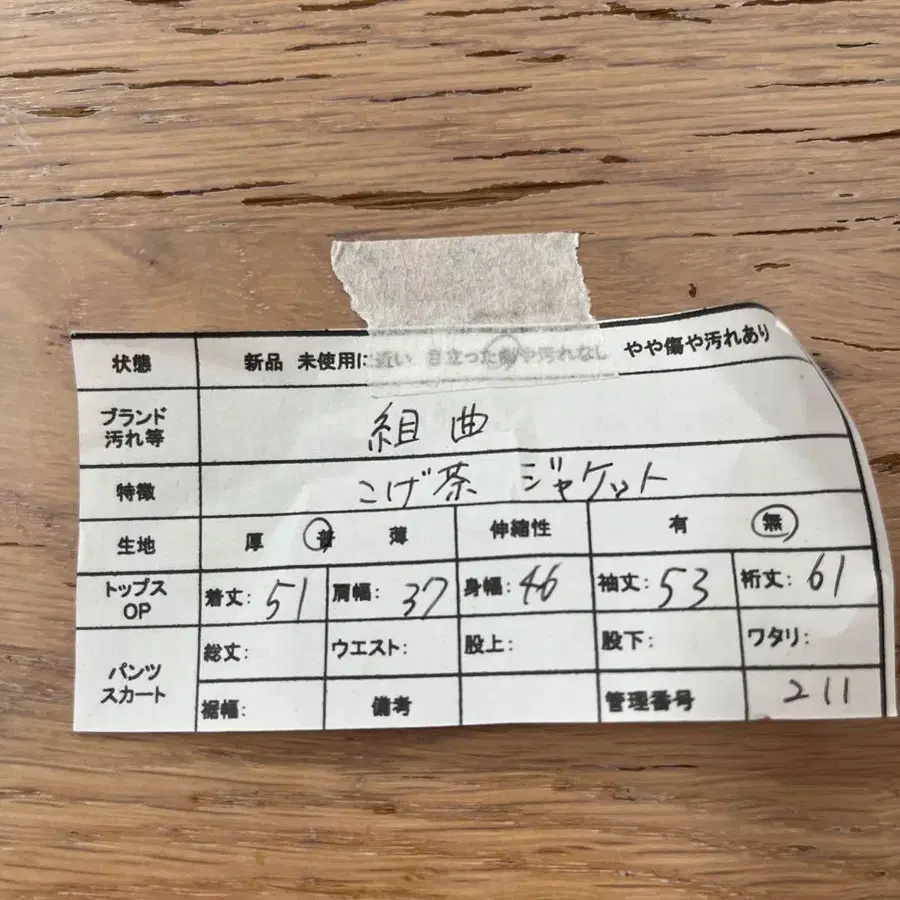 状態 新品 未使用に近い 目立った傷や汚れなし やや傷や汚れあり
ブランド
汚れ等 組曲
特徴 こげ茶 ジャケット
生地 厚 普 薄 伸縮性 有 無
トップス
OP 着丈: 51 肩幅: 37 身幅: 46 袖丈: 53 裄丈: 61
パンツ
スカート 総丈: ウエスト: 股上: 股下: ワタリ:
裾幅: 備考 管理番号 211